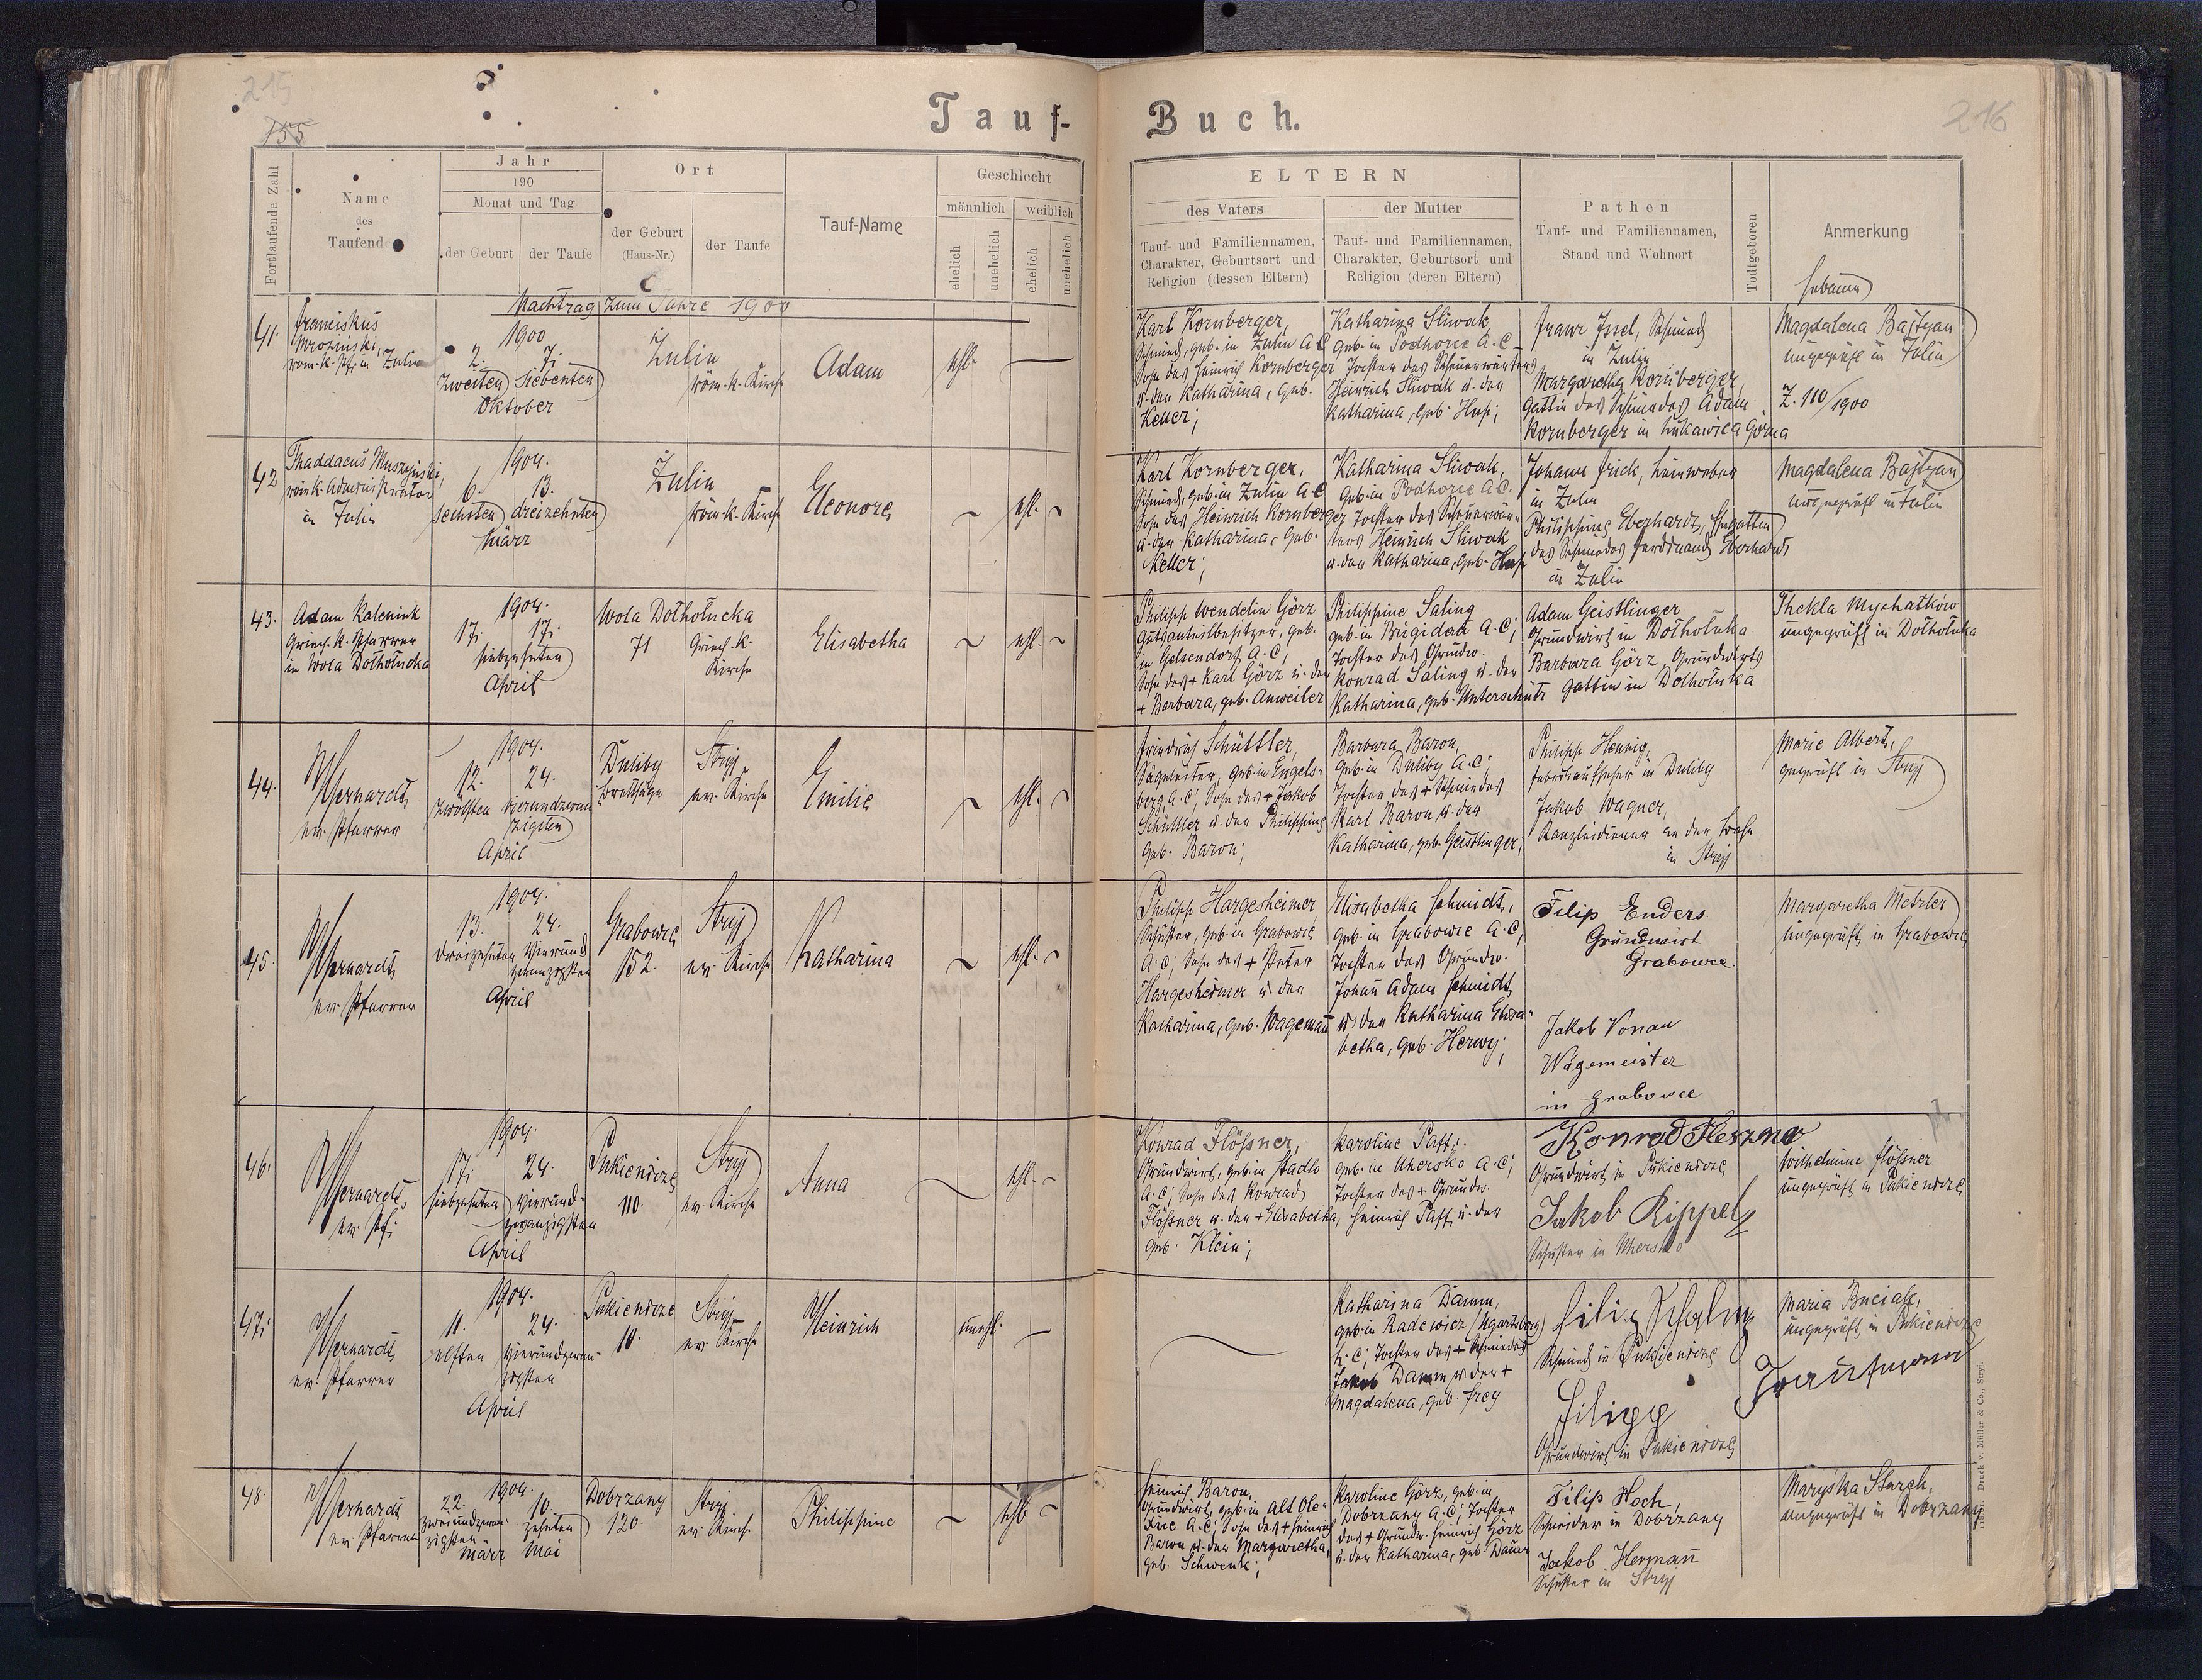 215
216
155
Tauf-
Buch.
Fortlaufende Zahl
Name
des
Taufenden
Jahr
190
Monat und Tag
der Geburt
der Taufe
Ort
der Geburt
(Haus-Nr.)
der Taufe
Tauf-Name
Geschlecht
männlich
weiblich
ehelich
unehelich
ehelich
unehelich
ELTERN
des Vaters
Tauf- und Familiennamen,
Charakter, Geburtsort und
Religion (dessen Eltern)
der Mutter
Tauf- und Familiennamen,
Charakter, Geburtsort und
Religion (deren Eltern)
Pathen
Tauf- und Familiennamen,
Stand und Wohnort
Todtgeboren
Anmerkung
Hebamme
Nachtrag zum Jahre 1900
41.
Franciskus
Mroziński,
röm.-k. Pf. in Żulin
1900
2. 7.
Zweiten Siebenten
Oktober
Żulin
röm.-k. Kirche
Adam
ehl.
Karl Kornberger,
Schmied, geb. in Żulin A.C.
Sohn des Heinrich Kornberger
u. der Katharina, geb.
Keller;
Katharina Sliwak,
geb. in Podhorce A.C.
Tochter des
Heinrich Sliwak u. der
Katharina, geb. Huß;
Franz Issel, Schmied
in Żulin
Margaretha Kornberger,
Gattin des Schmiedes Adam
Kornberger in Łukawica górna
Magdalena Bajtyan
ungeprüft in Żulin
Z. 110/1900
42
Thaddaeus Muszyński,
röm. k. Administrator
in Żulin
1904.
6. 13.
sechsten dreizehnten
März
Żulin
röm.-k. Kirche
Eleonore
ehl.
Karl Kornberger,
Schmied, geb. in Żulin A.C.
Sohn des Heinrich Kornberger
u. der Katharina, geb.
Keller;
Katharina Sliwak,
geb. in Podhorce A.C.
Tochter des
Heinrich Sliwak
u. der Katharina, geb. Huß
Johann Frick, Leinweber
in Żulin
Philippine Eberhardt, Ehegattin
des Schmiedes Ferdinand Eberhardt
in Żulin
Magdalena Bajtyan
ungeprüft in Żulin
43.
Adam Kaleniuk
Griech. k. Pfarrer
in Wola Dołhołucka
1904.
17. 17.
siebzehnten
April
Wola Dołhołucka
71
Griech.-k.
Kirche
Elisabetha
ehl.
Philipp Wendelin Görz
Gutsanteilbesitzer, geb.
in Gelsendorf, A.C.;
Sohn des + Karl Görz u. der
+ Barbara, geb. Anweiler
Philippine Saling
geb. in Brigidau A.C.;
Tochter des Grundw.
Konrad Saling u. der
Katharina, geb. Unterschütz
Adam Geistlinger
Grundwirt in Dołhołuka
Barbara Görz, Grundwirts
Gattin in Dołhołuka
Thekla Mychatków
ungeprüft in Dołhołuka
44.
Gerhardt,
ev. Pfarrer
1904.
12. 24.
zwölften vierundzwan
zigsten
April
Duliby
Brettsäge
Stryj
ev. Kirche
Emilie
ehl.
Friedrich Schüttler,
Sägeleiter, geb. in Engels-
berg, A.C.; Sohn des + Jakob
Schüttler u. der Philippine
geb. Baron;
Barbara Baron,
geb. in Duliby A.C.;
Tochter des + Schmiedes
Karl Baron u. der
Katharina, geb. Geistlinger;
Philipp Hennig,
Fabriksaufseher in Duliby
Jakob Wagner,
Kanzleidiener an der Bahn
in Stryj
Marie Albert,
geprüft in Stryj
45.
Gerhardt,
ev. Pfarrer
1904.
13. 24.
dreizehnten Vierund
zwanzigsten
April
Grabowce
152.
Stryj
ev. Kirche
Katharina
ehl.
Philipp Hargesheimer,
Schuster, geb. in Grabowce
A.C.; Sohn des + Peter
Hargesheimer u. der
Katharina, geb. Wagemann
Elisabetha Schmidt,
geb. in Grabowce A.C.;
Tochter des Grundw.
Johann Adam Schmidt
u. der Katharina Elisa-
betha, geb. Herwy;
Filip Enders.
Grundwirt
Grabowce.
Jakob Vonau
Wägemeister
in Grabowce
Margaretha Metzler
ungeprüft, in Grabowce
46.
Gerhardt,
ev. Pf.
1904.
17. 24.
siebzehnten Vierund-
zwanzigsten
April
Pukienicze
110.
Stryj
ev. Kirche
Anna
ehl.
Konrad Flössner,
Grundwirt, geb. in Stadlo
A.C.; Sohn des Konrad
Flössner u. der + Elisabetha,
geb. Klein;
Karoline Paff,
geb. in Uhersko A.C.;
Tochter des + Grundw.
Heinrich Paff, u. der
Konrad Herzner
Grundwirt in Pukienicze
Jakob Rippel
Schuster in Uhersko
Wilhelmine Flössner
ungeprüft in Pukienicze
47.
Gerhardt,
ev. Pfarrer
1904.
11. 24.
elften Vierundzwan-
zigsten
April
Pukienicze
10.
Stryj
ev. Kirche
Heinrich
unehl.
Katharina Damm,
geb. in Radewicz (Ugartsberg)
H.C.; Tochter des + Schmiedes
Jakob Damm u. der +
Magdalena, geb. Frey
Schmied in Pukienicze
Filipp
Trautmann
Grundwirt in Pukienicze
ungeprüft in Pukienicze
48.
Gerhardt
ev. Pfarrer
1904.
22. 10.
zweiundzwan-
zigsten zehnten
März Mai
Dobrzany
120
Stryj
ev. Kirche
Philippine
ehl.
Heinrich Baron,
Grundwirt, geb. in Alt Ole-
xice A.C.; Sohn des + Heinrich
Baron u. der Margaretha,
geb. Schwenk;
Karoline Görz, geb. in
Dobrzany A.C.; Tochter
des + Grundw. Heinrich Görz
u. der Katharina, geb. Daum
Filip Hoch,
Schneider in Dobrzany
Jakob Hermann
Schuster in Stryj
Maryśka Starch,
ungeprüft in Dobrzany
Druck v. Müller & Co., Stryj.